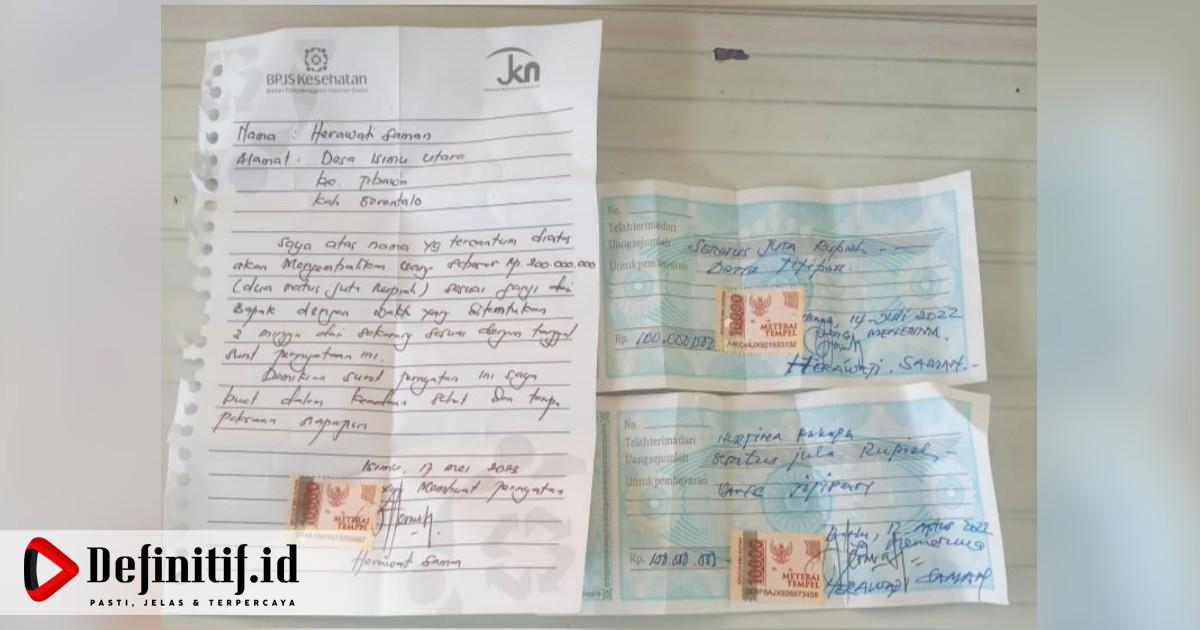 BPJS Kesehatan
Badan Penyelenggara Jaminan Sosial
jkn
Nama : Herawati Saman
Alamat : Desa Isimu Utara
Kec. Tibawa
Kab Gorontalo
Saya atas nama yg tercantum diatas
akan Mengembalikan uang sebesar Rp. 200.000.000
(dua ratus juta Rupiah) sesuai janji dari
Bapak dengan waktu yang ditentukan
2 minggu dari sekarang sesuai dengan tanggal
surat pernyataan ini.
Demikian surat pernyatan ini saya
buat dalam keadaan sehat dan tanpa
paksaan siapapun
Isimu, 17 Mei 2023
yg Membuat pernyatan
10000
METERAI
TEMPEL
Herawati Saman
No.
Telah terima dari
Uang sejumlah SERATUS JUTA RUPIAH
Untuk pembayaran DANA TITIPAN.
10000
METERAI
TEMPEL
14-JULI 2022
YANG MENERIMA.
Rp. 100.000.000
HERAWATI. SAMAN.-
No.
Telah terima dari
Uang sejumlah Seratus juta Rupiah
Untuk pembayaran TITIPAN
2022
10000
METERAI
TEMPEL
Rp. 100.000.000
HERAWATI SAMAN
Definitif.id
PASTI, JELAS & TERPERCAYA